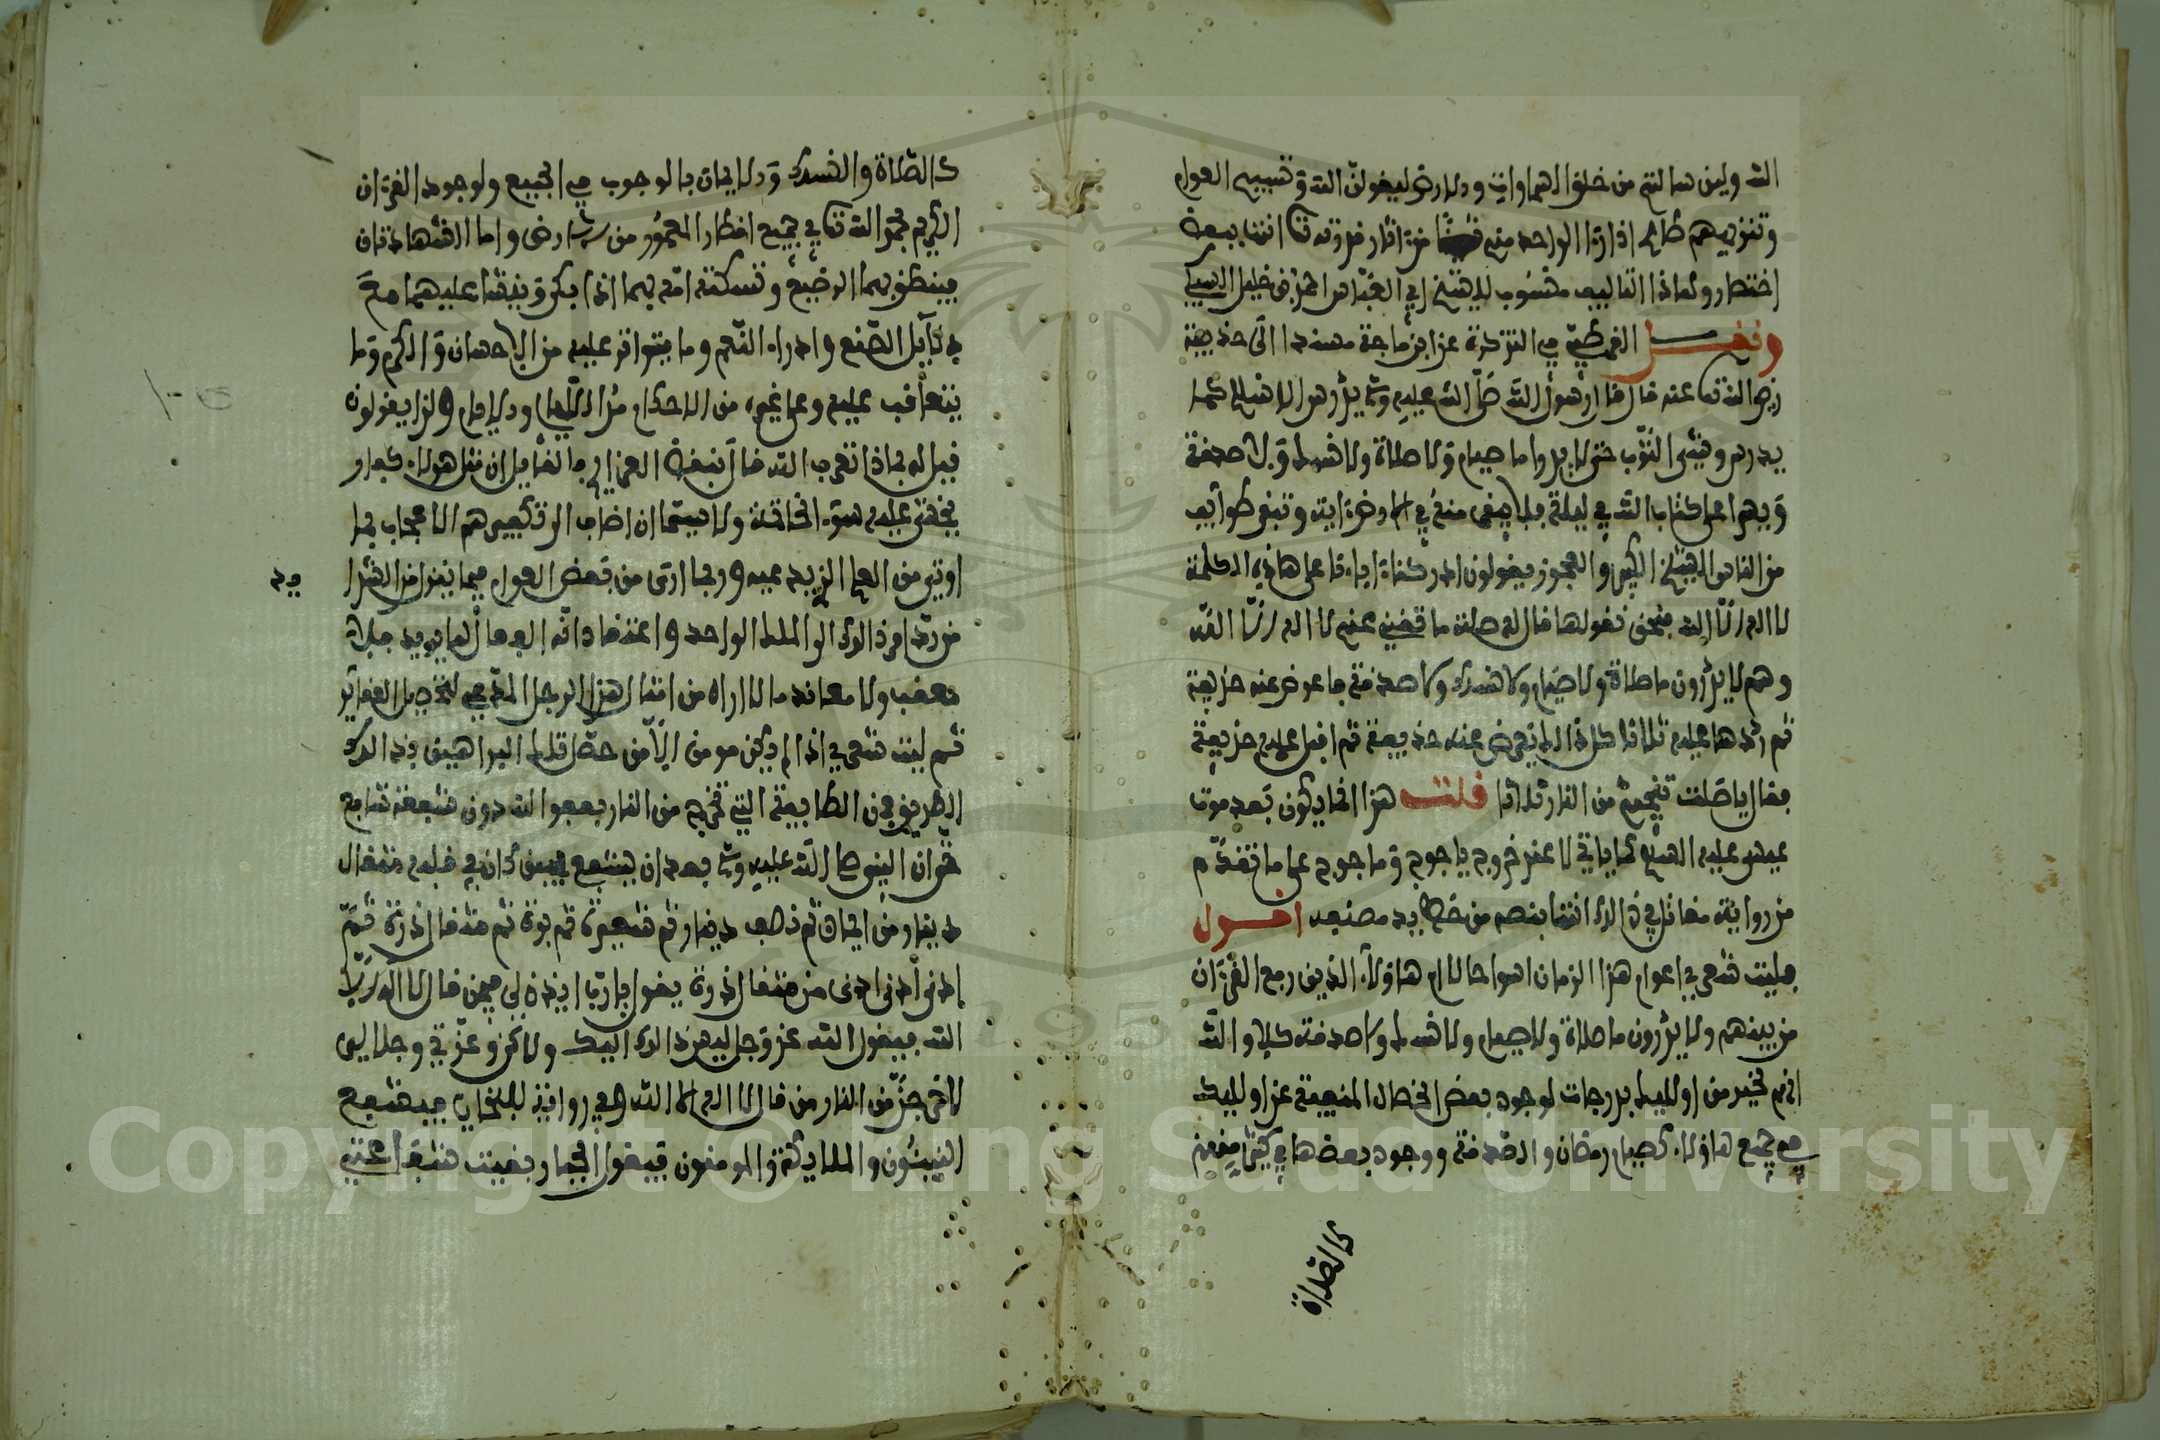 الله ولين سالتهم من خلق السماوات والارض ليقولن الله وتسبيح العوام
وتنزيههم ظاهر اذا رءا الواحد منهم شيئا من ءاثار قدرته تعالى انتهى ببعض
اختصار وهاذا التاليف منسوب للشيخ ابي العباس احمد بن خليل السبكي
ونقل القرطبي في التذكرة عن ابن ماجة مسندا الى حذيفة
رضي الله تعالى عنه قال قال رسول الله صلى الله عليه وسلم يدرس الاسلام كما
يدرس وشي الثوب حتى لا يدروا ما صيام ولا صلاة ولا نسك ولا صدقة
ويسرا على كتاب الله في ليلة فلا يبقى منه في الارض ءاية وتبقى طوايف
من الناس الشيخ الكبير والعجوز يقولون ادركناه اباءنا على هاذه الكلمة
لا اله الا الله فنحن نقولها قال له صلة ما تغني عنهم لا اله الا الله
وهم لا يدرون ما صلاة ولا صيام ولا نسك ولا صدقة فاعرض عنه حذيفة
ثم ردها عليه ثلاثا كل ذالك يعرض عنه حذيفة ثم اقبل عليه حذيفة
فقال يا صلت تنجيهم من النار ثلاثا قلت هذا انما يكون بعد موت
عيسى عليه السلام لما ياتي لا عند خروج ياجوج وماجوج على ما تقدم
من رواية مقاتل في ذالك انتهى بنصه من خط يد مصنفه اقول
فليت شعري اعوام هذا الزمان اسوا حالا ام هاؤلاء الذين رفع القرءان
من بينهم ولا يدرون ما صلاة ولا صيام ولا نسك ولا صدقة كلا والله
انهم لخير من اوليك بدرجات لوجود بعض الخصال المنفية عن اوليك
في جميع هاؤلاء كصيام رمضان والصدقة ووجود بعضها في كثير منهم
كالصلاة
كالصلاة والنسك والايمان بالوجوب في الجميع ولوجود القرءان
الكريم بحمد الله تعالى في جميع اقطار المعمور من الارض واما الشهادتان
فينطق بهما الرضيع وتسكته امه بهما اذا بكى وينشا عليهما مع
دلايل الصنع وادرار النعم وما يتواتر عليه من الاحسان والكرم وما
يتعاقب عليه وعلى غيره من الاحكام من اللئام والالام ولذا يقولون
قيل له بماذا تعرف الله قال بنقض العزايم فالقايل ان مثل هولاء كفار
يخشى عليه سوء الخاتمة ولا سيما ان اضاف الى تكفيرهم الاعجاب بما
اوتي من العلم الزهيد عنده وربما ارى من بعض العوام فيما يقول من الشرا
من رد امر ذالك الى الملك الواحد واعتقاد انه الفعال لما يريد فلا
معقب ولا معاند ما لا اراه من امثال هذا الرجل المدعي لتحصيل العقايد
ثم ليت شعري اذا لم يكن مومن الا من حصل تلك البراهين بذالك
الطريق فمن الطايفة التي تخرج من النار بعفو الله دون شفعة شافع
حتى ان النبي صلى الله عليه وسلم بعد ان يشفع فيمن كان في قلبه مثقال
دينار من ايمان ثم نصف دينار ثم شعيرة ثم برة ثم مثقال ذرة ثم
ادنى ادنى ادنى من مثقال ذرة يقول يا رب ايذن لي فيمن قال لا اله الا
الله فيقول الله عز وجل ليس ذالك اليك ولاكن وعزتي وجلالي
لاخرجن من النار من قال لا اله الا الله وفي رواية للبخاري فيشفع
النبيئون والملايكة والمومنون فيقول الجبار بقيت شفاعتي